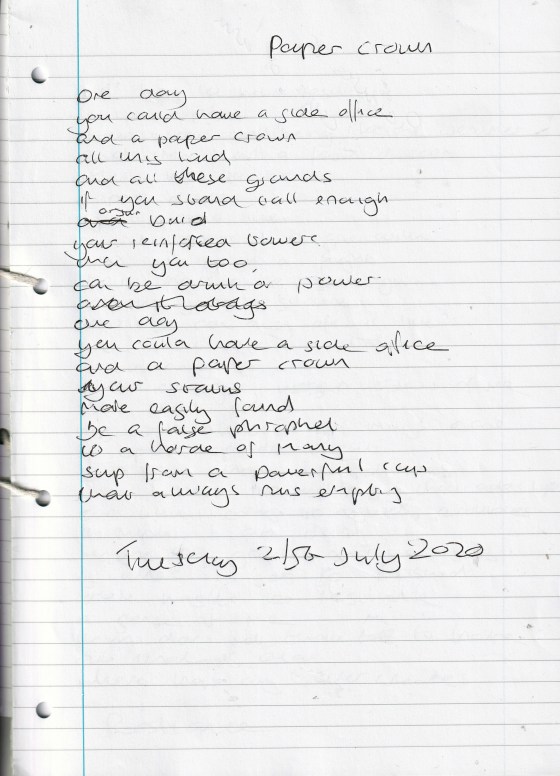 Paper crown
one day
you could have a side office
and a paper crown
all this land
and all these grounds
if you stand tall enough
or build
your reinforced towers
then you too,
can be drunk on power.
one day
you could have a side office
and a paper crown
your status
more easily found
be a false phrophet
to a horde of many
sup from a powerful cup
that always runs empty
Tuesday 21st July 2020